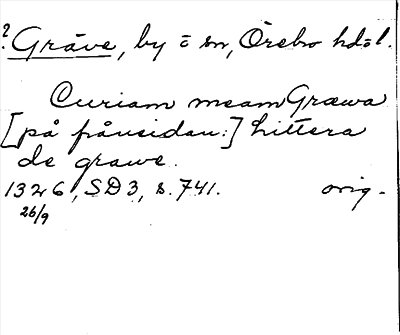 ? Gräve, by o sn, Örebro hd o l.
Curiam meam Græwa
[på frånsidan:] Littera
de grawe.
1326, SD 3, s. 741. orig.
26/9